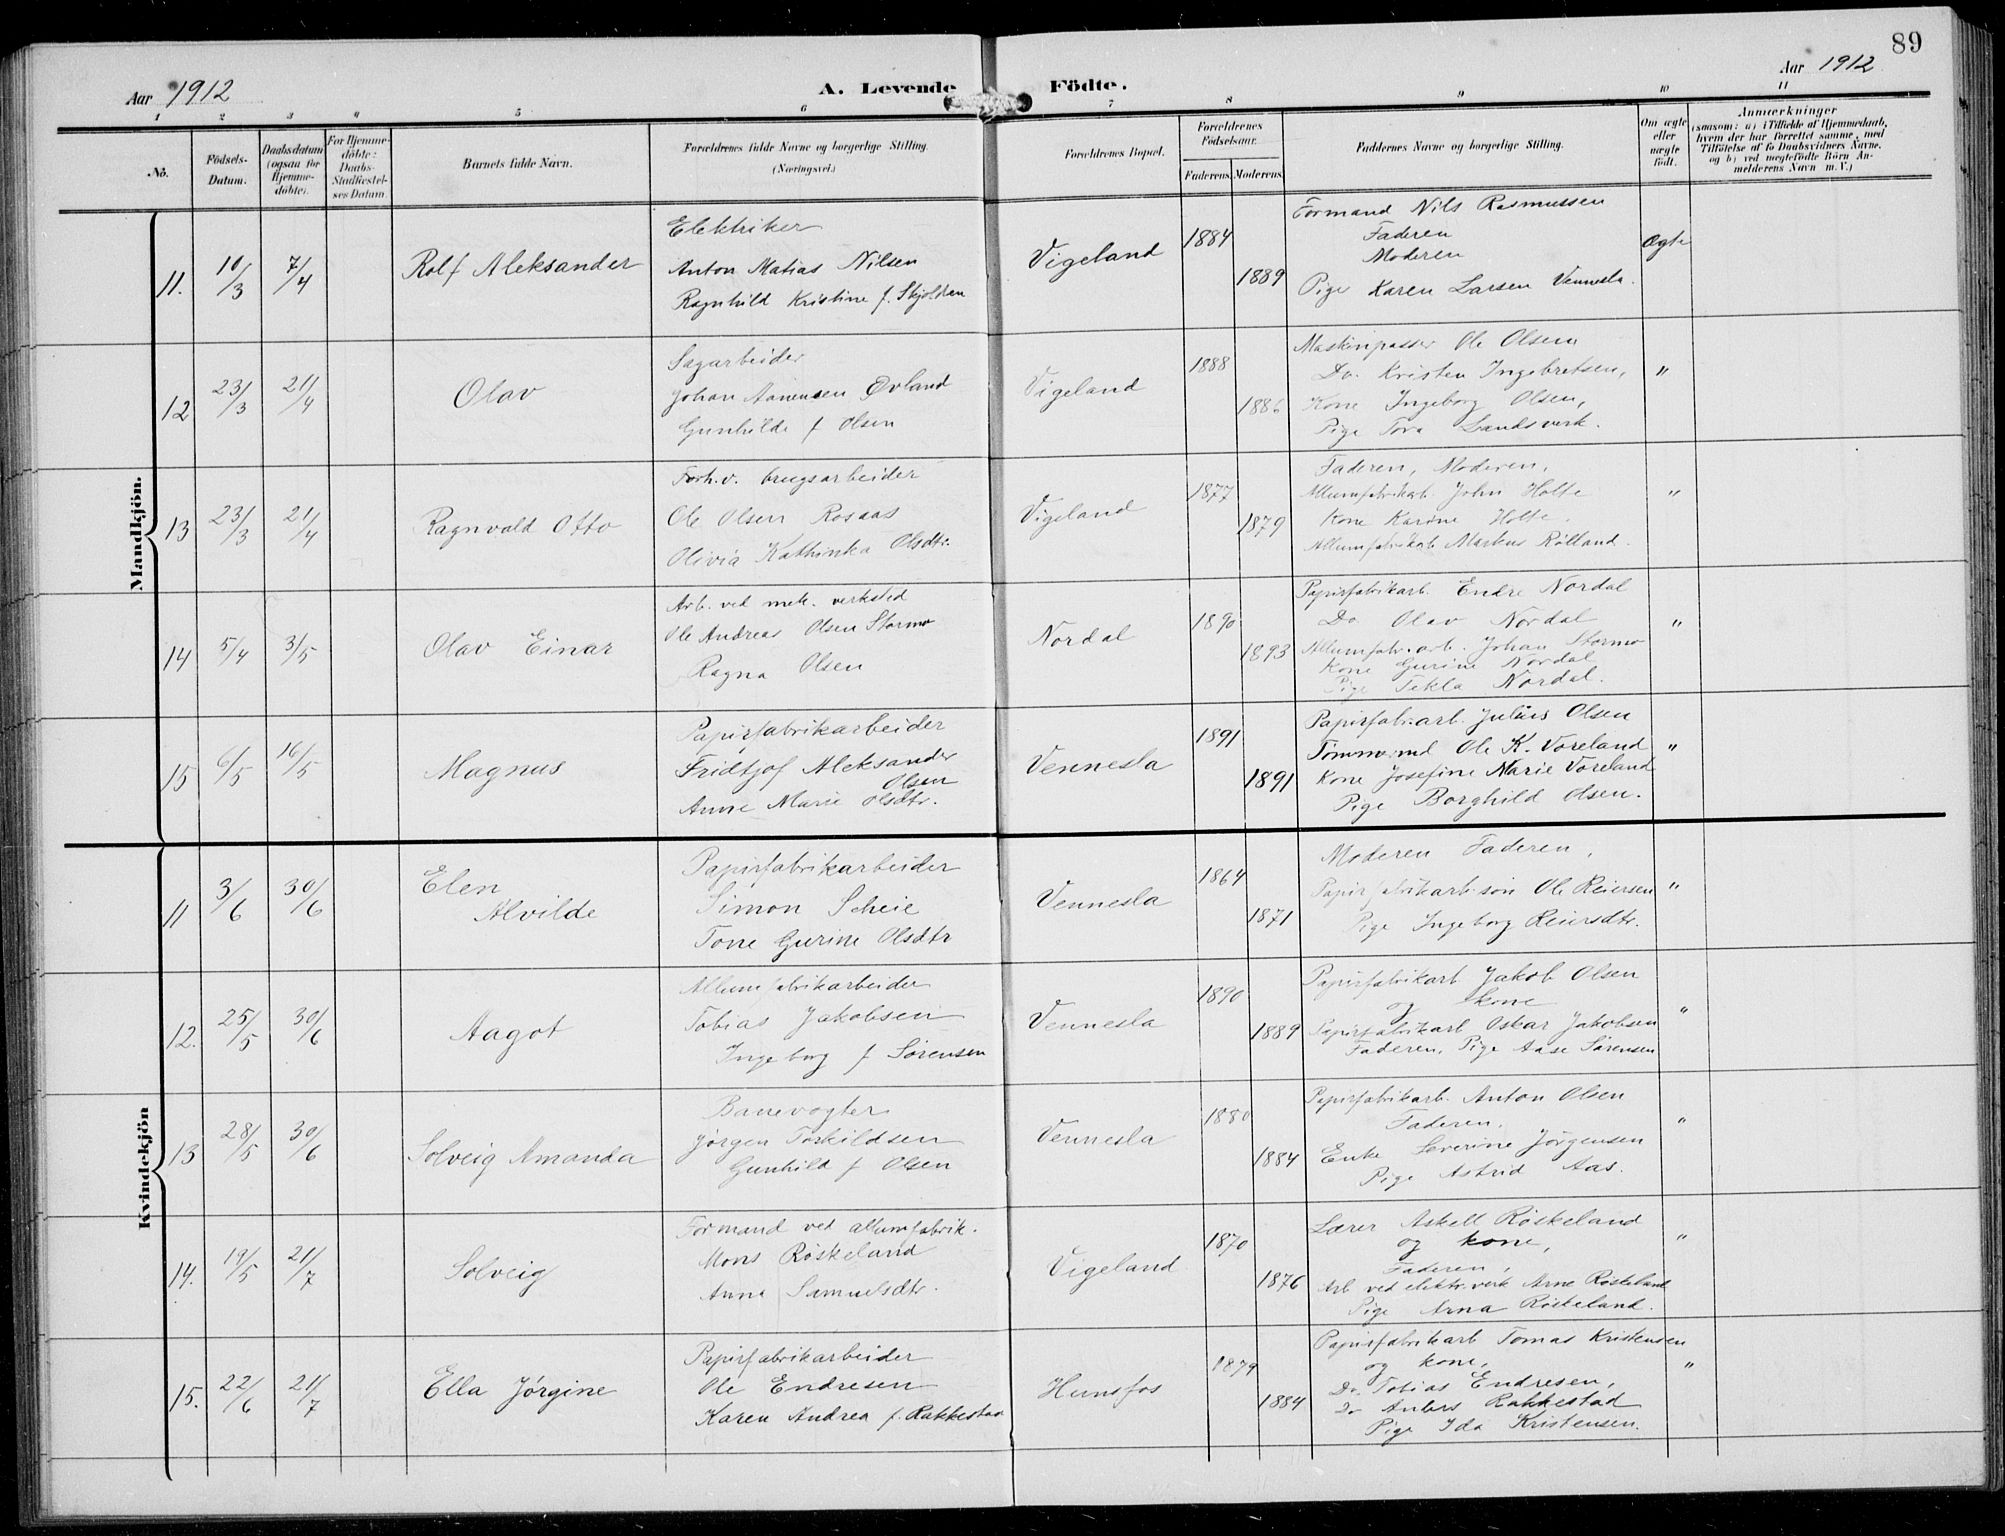 89
Aar 1912
A. Levende Födte.
Aar 1912
1 2 3 4 5 6 7 8 9 10 11
No.
Födsels-Datum.
Daabsdatum (ogsaa for Hjemmedöbte).
For Hjemmedöbte: Daabs-Stadfæstelses Datum
Barnets fulde Navn.
Forældrenes fulde Navne og borgerlige Stilling. (Næringsvei.)
Forældrenes Bopæl.
Forældrenes Födselsaar.
Faderens Moderens
Faddernes Navne og borgerlige Stilling.
Om ægte eller uægte födt.
Anmærkninger
(saasom: a) i Tilfælde af Hjemmedaab, hvem der har forrettet samme, med Tilföielse af to Daabsvidners Navne, og b) ved uægtefödte Börn Anmelderens Navn m. V.)
Mandkjön.
11. 10/3 7/4 Rolf Aleksander
Elektriker
Anton Matias Nilsen
Ragnhild Kristine f. Skjoldren
Vigeland 1884 1889
Formand Nils Rasmussen
Faderen
Moderen
Pige Karen Larsen Vennesla.
Ægte
12 23/3 21/4 Olav
Sagarbeider
Johan Aanensen Øvland
Gunhilde f Olsen
Vigeland 1888 1886
Maskinpasser Ole Olsen
Do. Kristen Ingebretsen,
Kone Ingeborg Olsen,
Pige Tora Landsverk.
"
13 23/3 21/4 Ragnvald Otto
Forh.v. brugsarbeider
Ole Olsen Rosaas
Olivia Kathinka Olsdtr.
Vigeland 1877 1879
Faderen, Moderen,
Allumfabrikarb. John Holte
Kone Karine Holte.
Allumfabrikarb Markus Rølland.
"
14 5/4 3/5 Olav Einar
Arb. ved mek. verksted
Ole Andreas Olsen Stormo
Ragna Olsen
Nordal 1890 1893
Papirfabrikarb. Endre Nordal
Do Olav Nordal
Allumfabr. arb. Johan Stormo
Kone Gurine Nordal
Pige Tekla Nordal.
"
15 6/5 16/5 Magnus
Papirfabrikarbeider
Fridtjof Aleksander
Olsen
Anne Marie Olsdtr.
Vennesla 1891 1891
Papirfab. arb. Julius Olsen
Tømmermd Ole K. Voreland
Kone Josefine Marie Voreland
Pige Borghild Olsen.
"
Kvindekjön
11 3/6 30/6 Elen
Alvilde
Papirfabrikarbeider
Simon Scheie
Tone Gurine Olsdtr
Vennesla 1864 1871
Moderen Faderen,
Papirfabrikarb. søn Ole Reiersen
Pige Ingeborg Reiersdtr.
"
12. 25/5 30/6 Aagot
Allumfabrikarbeider
Tobias Jakobsen
Ingeborg f Sørensen
Vennesla 1890 1889
Papirfabrikarb Jakob Olsen
og kone
Papirfabrikarb Oskar Jakobsen
Faderen, Pige Aase Sørensen
"
13 28/5 30/6 Solveig Amanda
Banevogter
Jørgen Torkildsen
Gunhild f Olsen
Vennesla 1880 1884
Papirfabrikarb. Anton Olsen
Faderen.
Enke Severine Jørgensen
Pige Astrid Aas.
"
14. 19/5 21/7 Solveig
Formand ved allumfabrik.
Mons Røskeland
Anna Samuelsdtr.
Vigeland 1870 1876
Lærer Askell Røskeland
og kone,
Faderen,
Arb ved elektr. verk Arne Røskeland
Pige Arna Røskeland.
"
15. 22/6 21/7 Ella Jørgine
Papirfabrikarbeider
Ole Endresen
Karen Andrea f. Rakkestad
Hunsfos 1879 1884
Papirfabrikarb Tomas Kristensen
og kone,
Do. Tobias Endresen,
Do Anders Rakkestad
Pige Ida Kristensen.
"